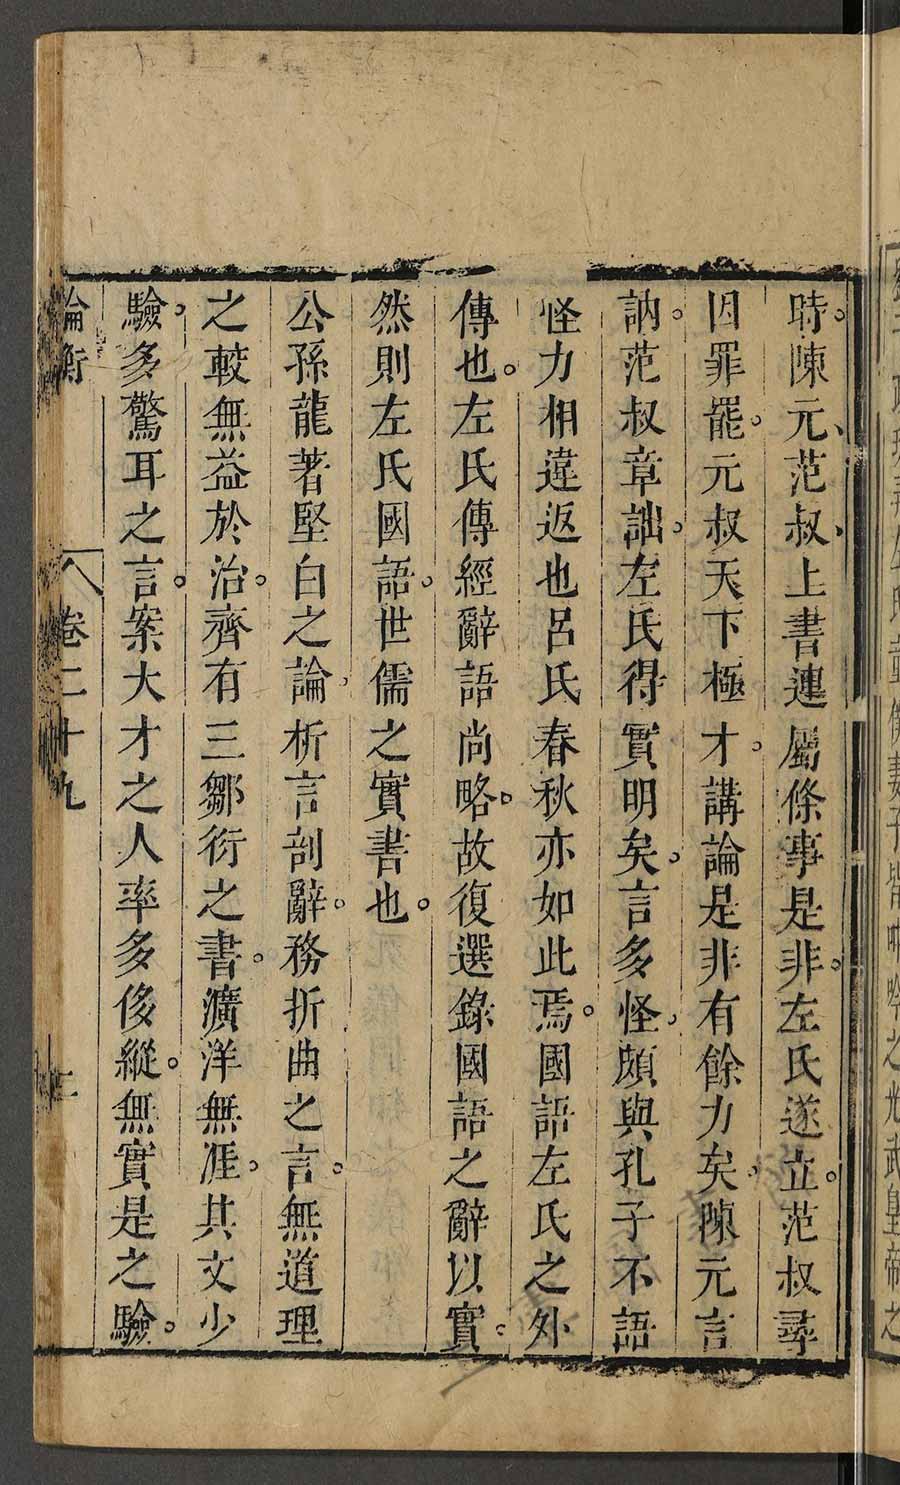 時。陳元、范叔、上書連屬條事是非。左氏遂立。范叔尋
因罪罷。元叔天下極才。講論是非有餘力矣。陳元言
訥。范叔章詘。左氏得實明矣。言多怪。頗與孔子不語
怪力相違返也呂氏春秋亦如此焉。國語左氏之外
傳也。左氏傳經辭語尚略。故復選錄國語之辭以實。
然則左氏國語。世儒之實書也。
公孫龍著堅白之論。析言剖辭。務折曲之言。無道理
之較無益於治。齊有三鄒衍之書。瀇洋無涯。其文少
驗。多驚耳之言。案大才之人率多侈縱。無實是之驗。
論衡 卷二十九